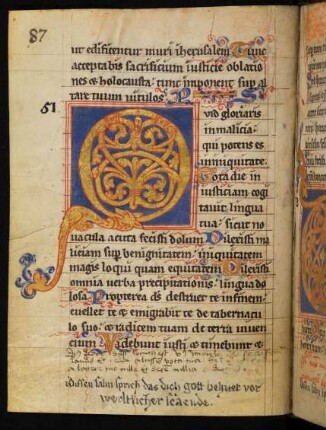 87
ut edificentur muri iherusalem Tunc
acceptabis sacrificium iusticie oblatio
nes & holocausta tunc imponent sup al
tare tuum uitulos
51
Quid gloriaris
in malicia
qui potens es
in iniquitate
Tota die in
iusticiam cogi
tauit lingua
tua sicut no
uacula acuta fecisti dolum Dilexisti ma
liciam sup benignitatem iniquitatem
magis loqui quam equitatem Dilexisti
omnia uerba precipitationis lingua do
losa Propterea ds destruet te in finem
euellet te & emigrabit te de tabernacu
lo suo & radicem tuam de terra uiuen
cium Videbunt iusti & timebunt &
dissen salm sprich das dich gott behuet vor
weltlicher